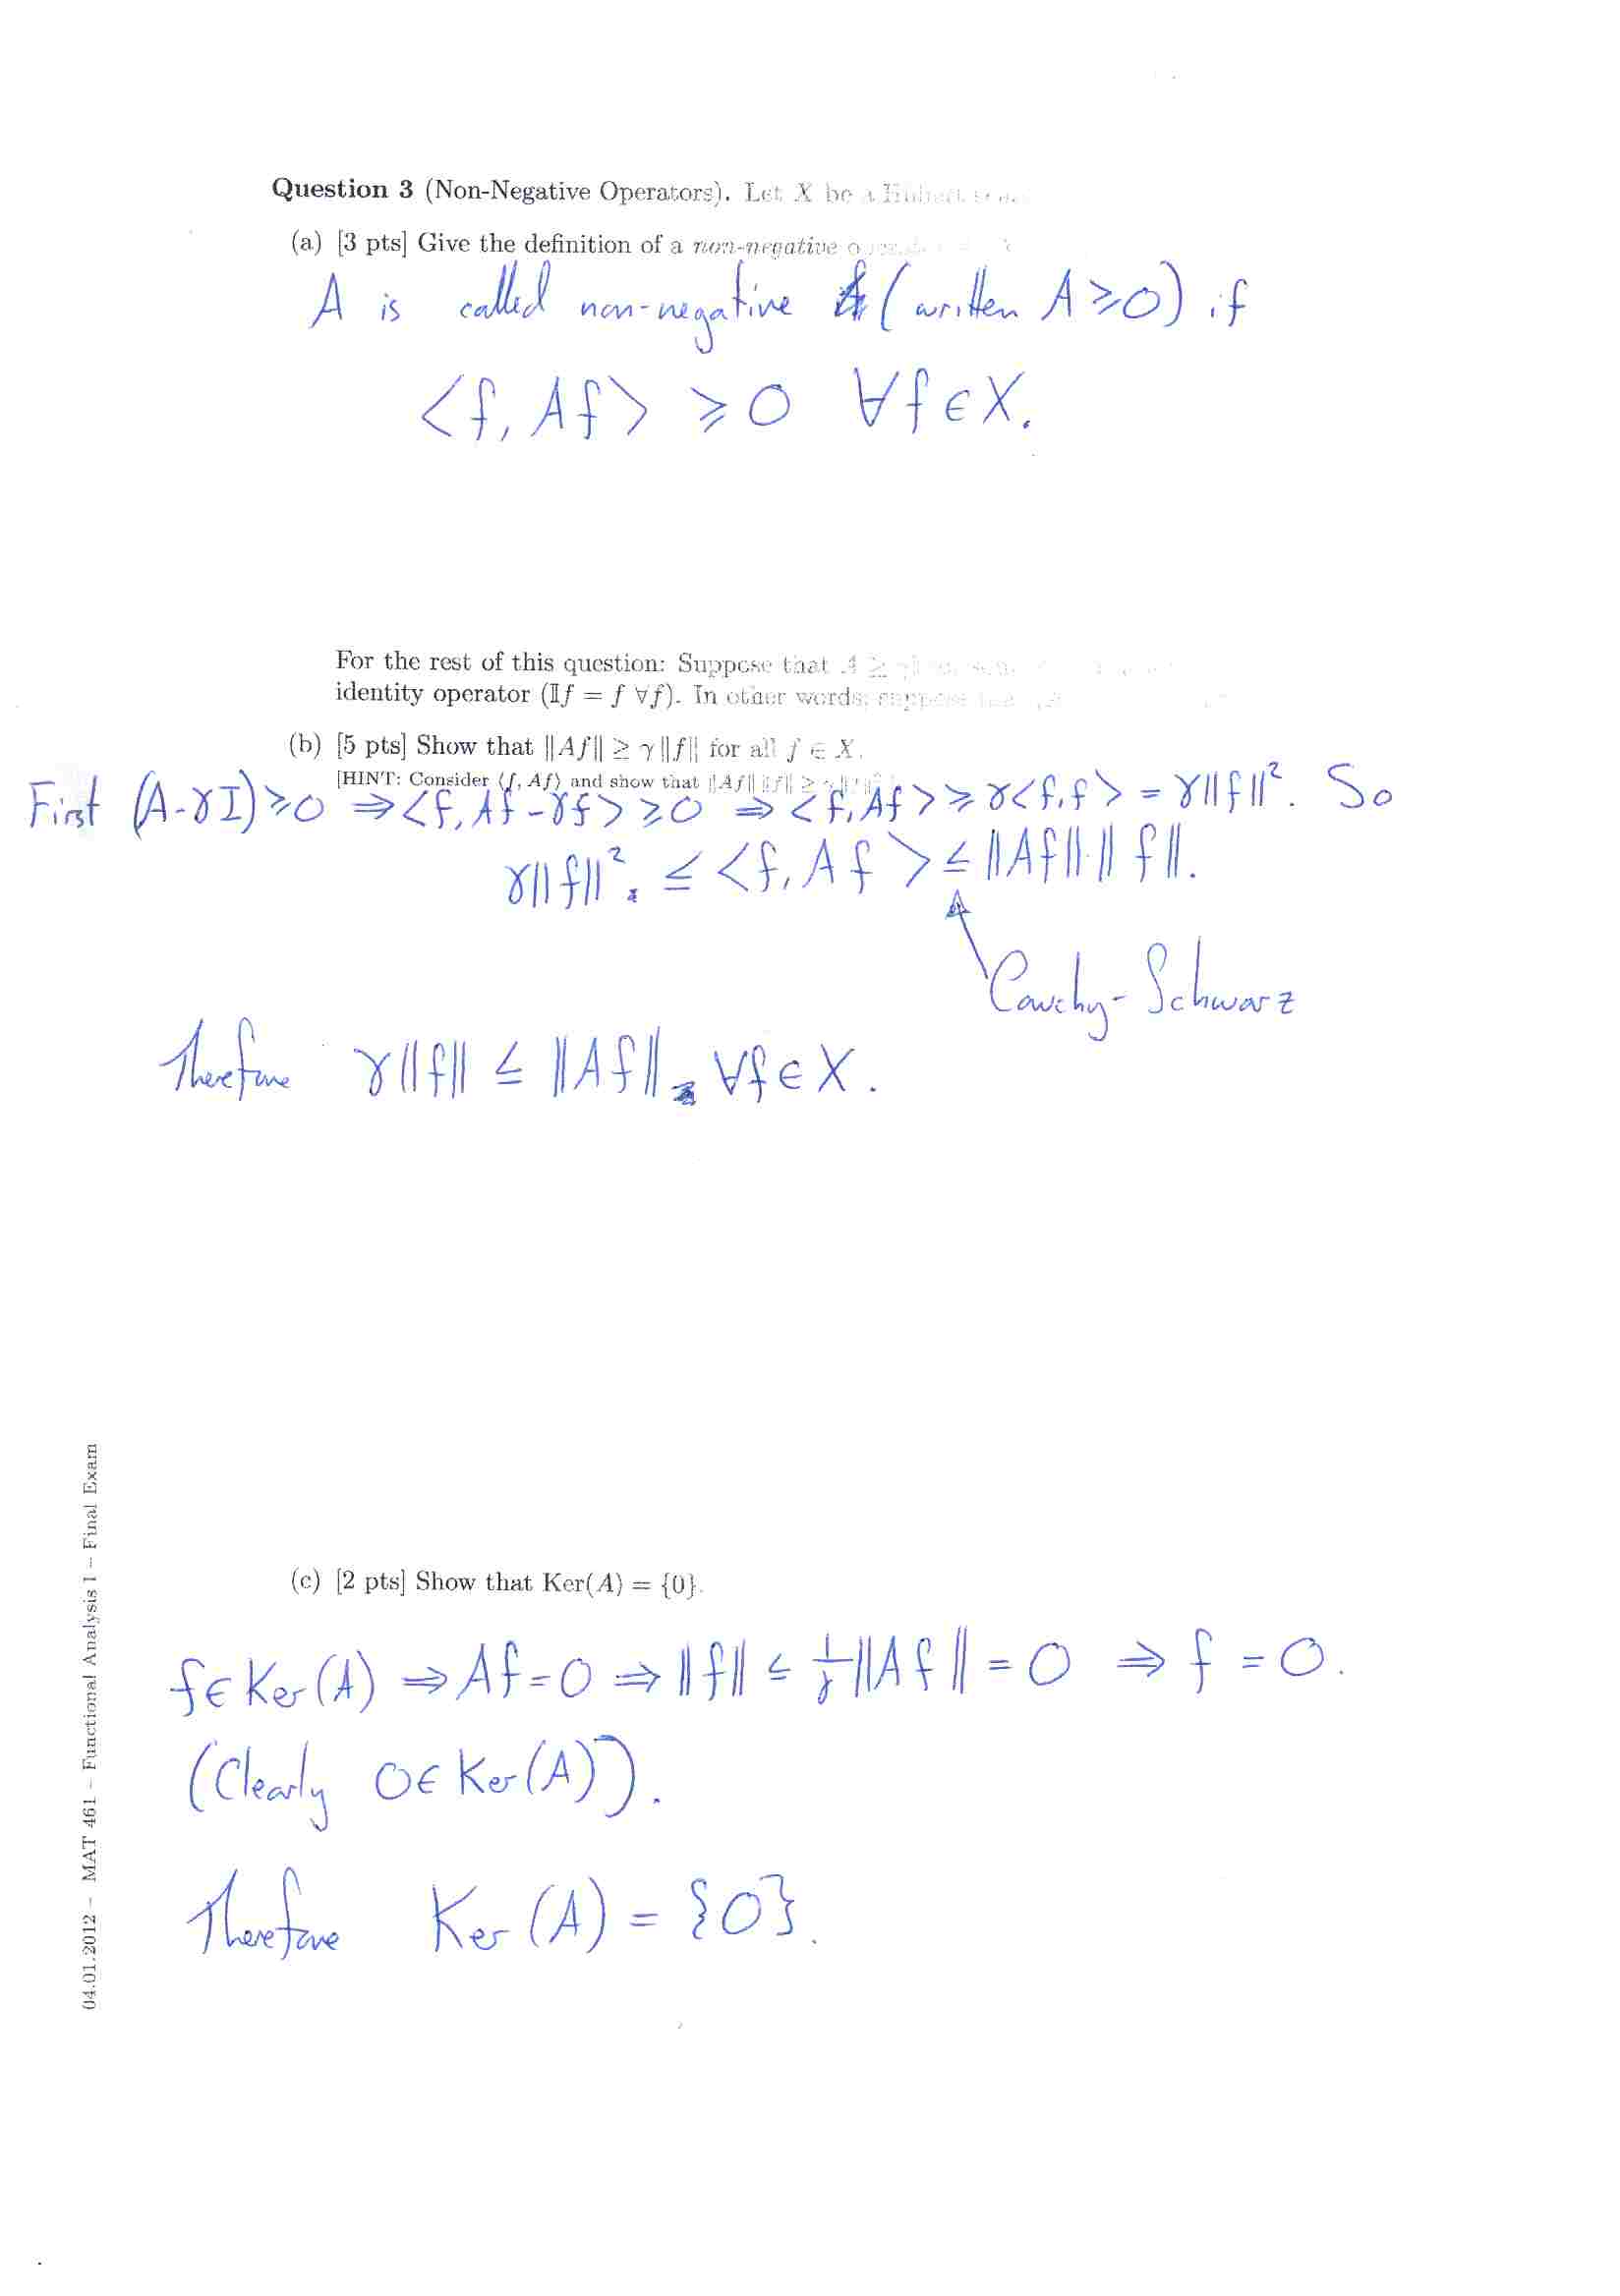 Question 3 (Non-Negative Operators). Let X be a Hilbert
(a) [3 pts] Give the definition of a non-negative
A is called non-negative (written A ⩾ 0) if
⟨f, Af⟩ ⩾ 0 ∀f ∈ X.
For the rest of this question: Suppose that A ≥
identity operator (𝕀f = f ∀f). In other words: suppose
(b) [5 pts] Show that ‖Af‖ ≥ γ‖f‖ for all f ∈ X.
[HINT: Consider ⟨f, Af⟩ and show that ‖Af‖ ‖f‖ ≥
First (A-γI) ⩾ 0 ⇒ ⟨f, Af - γf⟩ ⩾ 0 ⇒ ⟨f, Af⟩ ⩾ γ⟨f, f⟩ = γ‖f‖². So
γ‖f‖² ≤ ⟨f, Af⟩ ≤ ‖Af‖·‖f‖.
Cauchy-Schwarz
Therefore γ‖f‖ ≤ ‖Af‖ ∀f ∈ X.
(c) [2 pts] Show that Ker(A) = {0}.
f ∈ Ker(A) ⇒ Af = 0 ⇒ ‖f‖ ≤ 1/γ ‖Af‖ = 0 ⇒ f = 0.
(Clearly 0 ∈ Ker(A)).
Therefore Ker(A) = {0}.
04.01.2012 – MAT 461 – Functional Analysis I – Final Exam